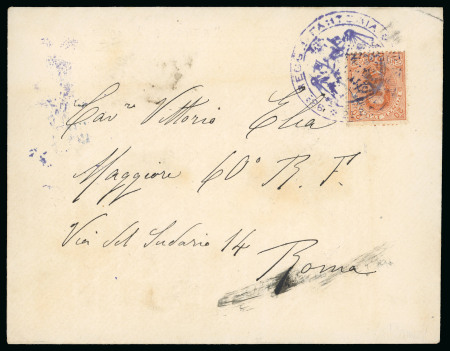 Cav.re Vittorio Elia
Maggiore 60º R. F.
Via del Sudario 14
Roma